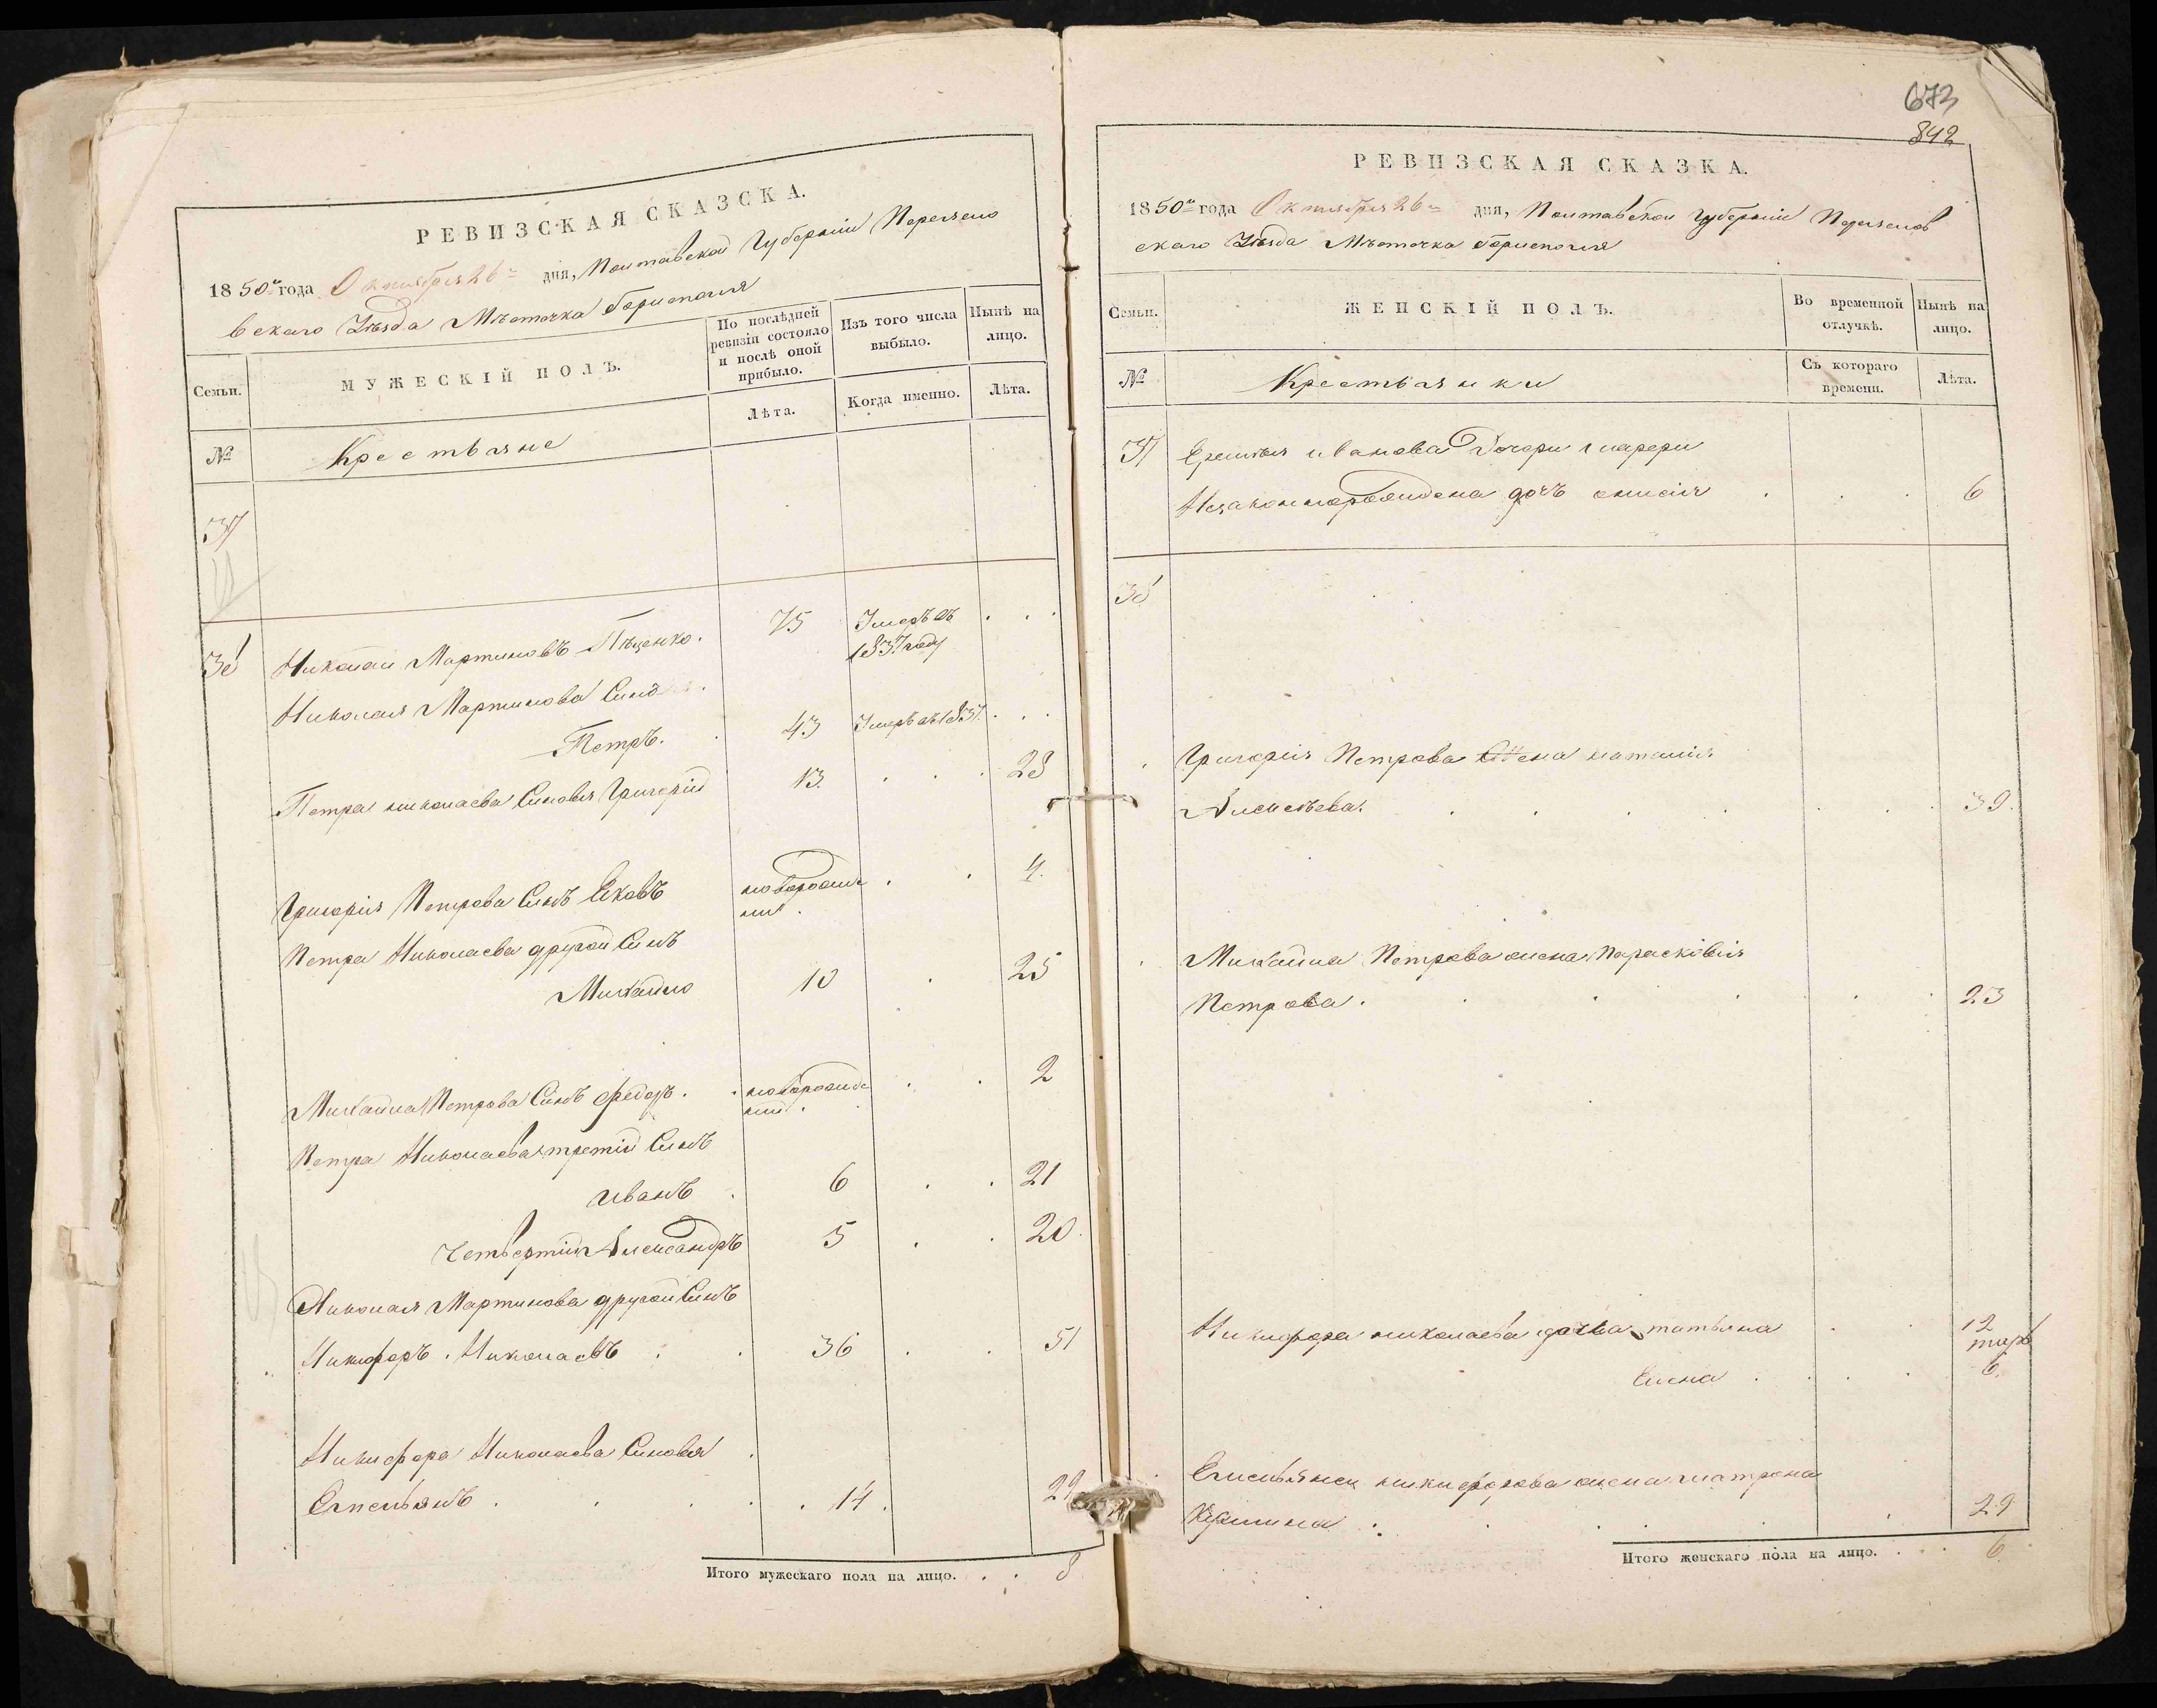 РЕВИЗСКАЯ СКАЗСКА.
1850го года Октября 26го дня, Полтавской Губерніи Переясло
вскаго Уѣзда Мѣстечка Борисполя
Семьи.
МУЖЕСКІЙ ПОЛЪ.
По послѣдней ревизіи состояло и послѣ оной прибыло.
Изъ того числа выбыло.
Нынѣ на лицо.
№
Крестьяне
Лѣта.
Когда именно.
Лѣта.
37
38 Николай Мартиновъ 75 Умеръ въ
1837 году
Николая Мартинова Синъ
Петръ. 43 Умеръ въ 1837.
Петра николаева Синовья Григорій 13. 28
Григорія Петрова Синъ Яковъ новорожде 4.
ний.
Петра Николаева другой Синъ
Михайло 10 25
Михайла Петрова Синъ Федоръ. новорожде 2
ний.
Петра Николаева третій Синъ
иванъ 6 21
Четвертий Александръ 5 20.
Николая Мартинова другой Синъ
Никифоръ. Николаевъ 36 51
Никифора Николаева Синовья
Емельянъ 14. 29
Итого мужескаго пола на лицо. 8
673
842
РЕВИЗСКАЯ СКАЗКА.
1850го года Октября 26го дня, Полтавской Губерніи Переяслов
скаго Уѣзда Мѣстечка Борисполя
Семьи.
ЖЕНСКІЙ ПОЛЪ.
Во временной отлучкѣ.
Нынѣ на лицо.
№
Крестьянки
Съ котораго времени.
Лѣта.
37 иванова Дочери
Незаконнорожденна дочь 6
38
Григорія Петрова жена наталія
Алексѣева. 39.
Михайла Петрова жена Парасковія
Петрова. 23
Никифора николаева дочка татьяна 12
Елена 6.
Емельяна никифорова жена матрона
29
Итого женскаго пола на лицо. 6.